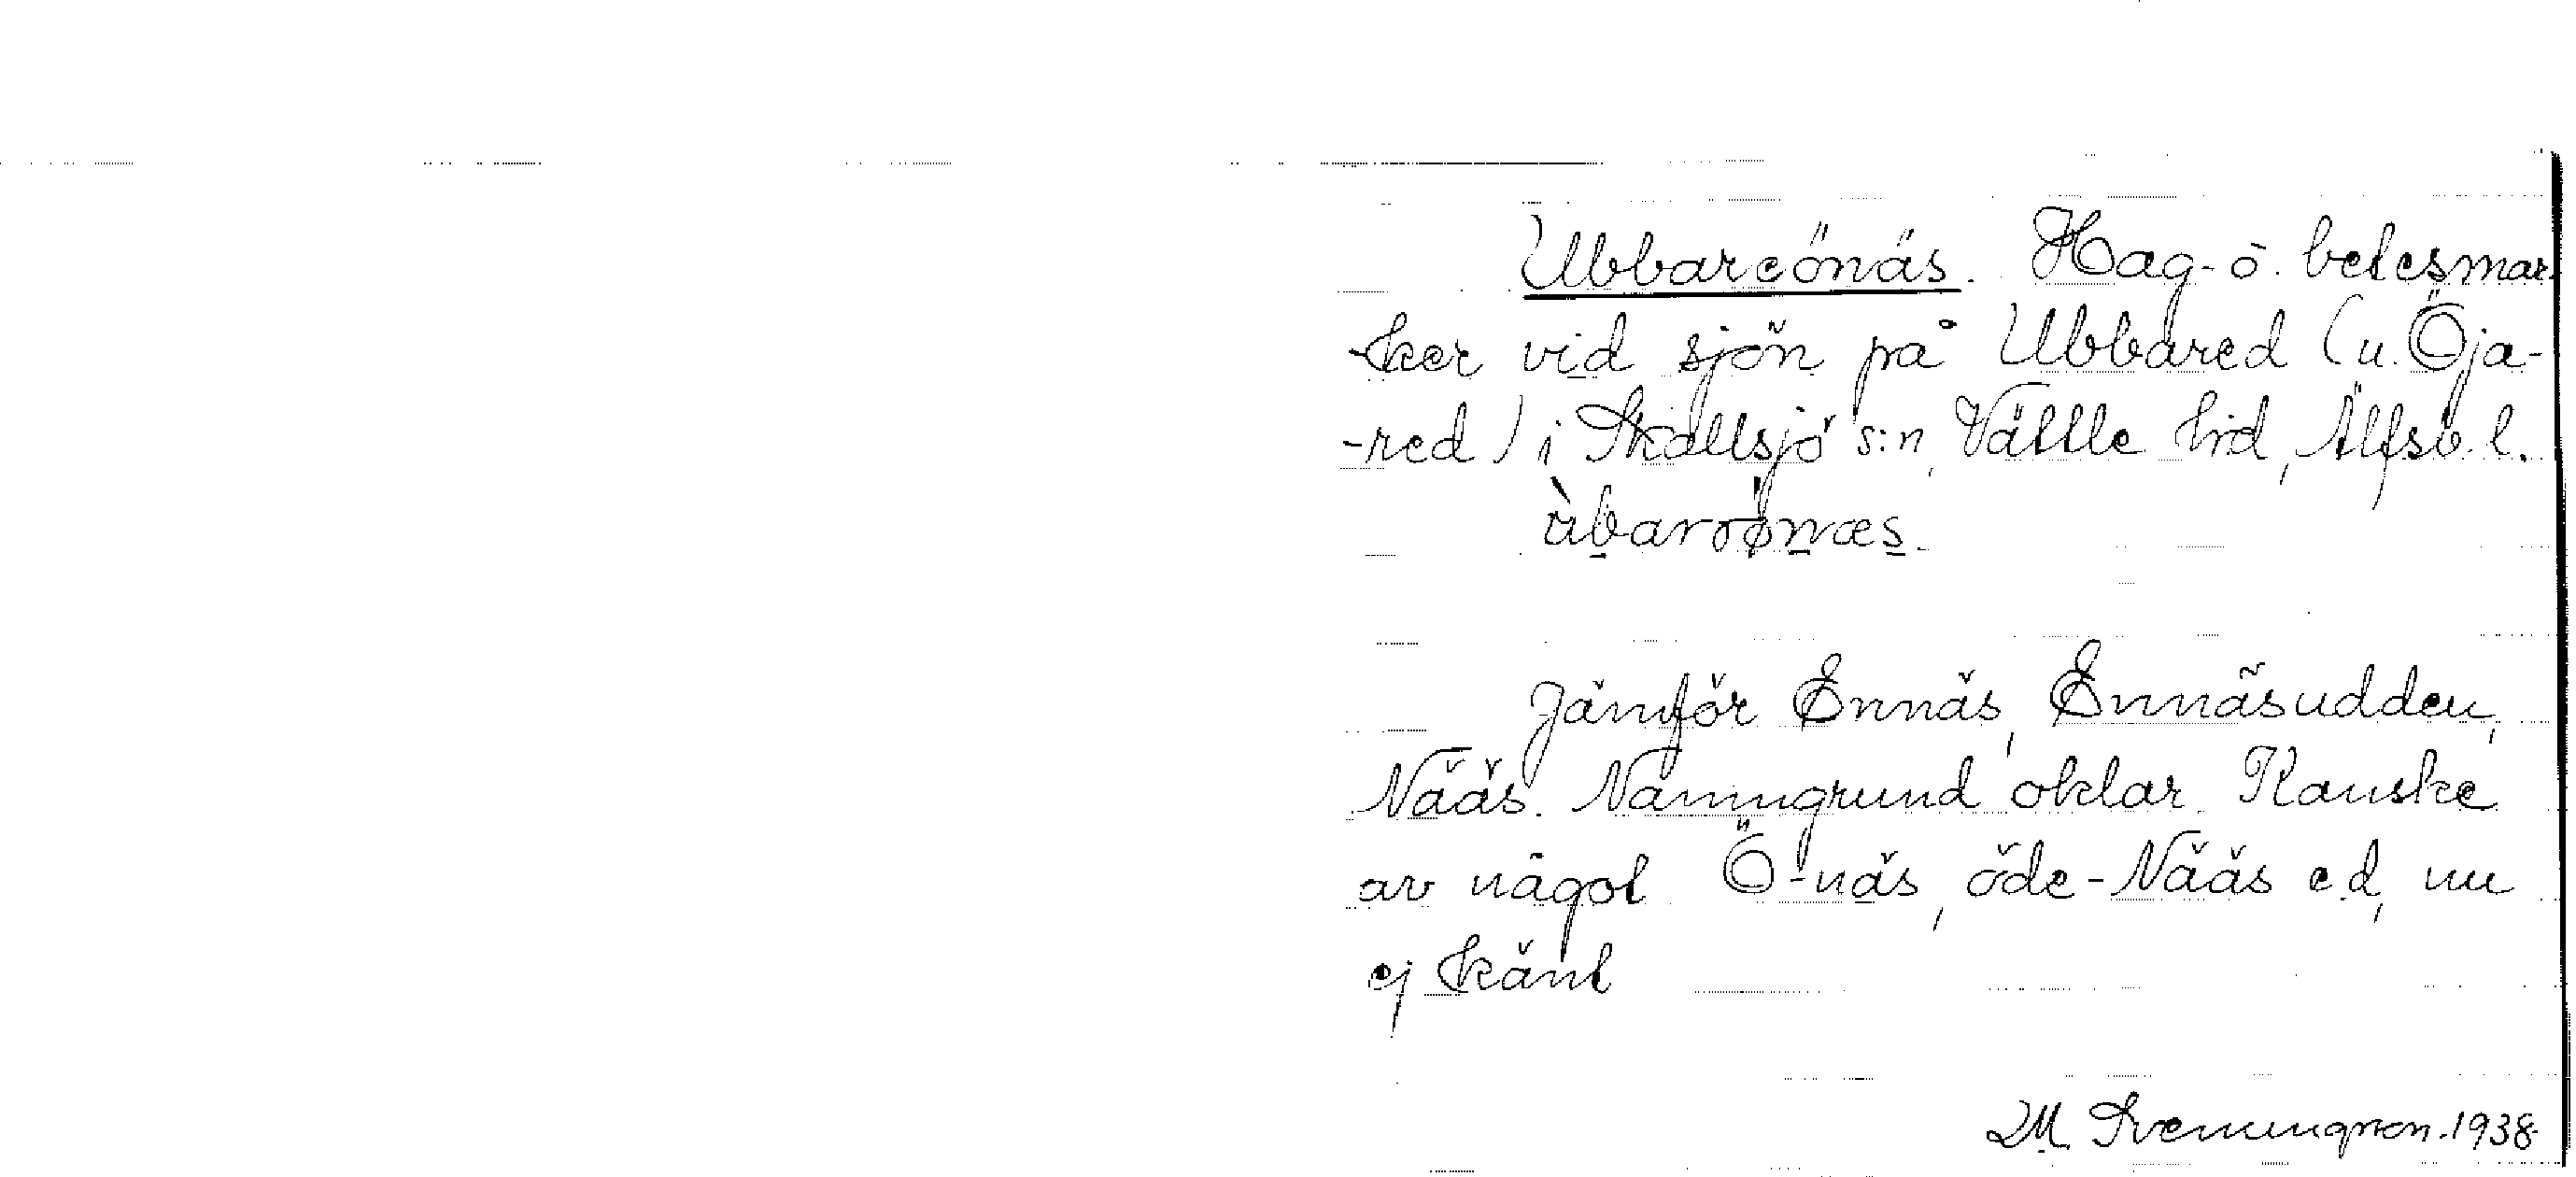 Ubbareönäs. Hag- o. betesmar-
-ker vid sjön på Ubbared (u. Öja-
-red) i Skallsjö s:n, Vättle hrd, Älfsb. l.
ùbarrønæs.
Jämför Ennäs, Ennäsudden,
Nääs. Namngrund oklar. Kanske
av något Ö-näs, öde-Nääs e.d, nu
ej känt
M. 1938